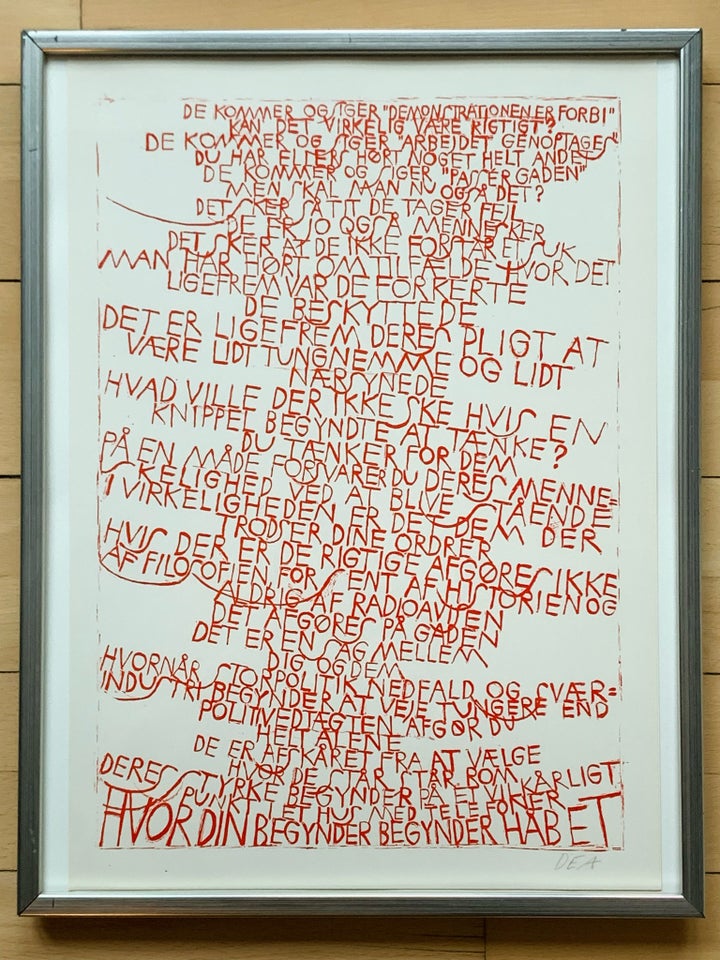 DE KOMMER OG SIGER "DEMONSTRATIONEN ER FORBI"
KAN DET VIRKELIG VÆRE RIGTIGT?
DE KOMMER OG SIGER "ARBEJDET GENOPTAGES"
DU HAR ELLERS HØRT NOGET HELT ANDET
DE KOMMER OG SIGER "PASSER GADEN"
MEN SKAL MAN NU OGSÅ DET?
DET SKER SÅTIT DE TAGER FEJL
DE ER JO OGSÅ MENNESKER
DET SKER AT DE IKKE FORSTÅR ET SUK
MAN HAR HØRT OM TILFÆLDE HVOR DET
LIGEFREM VAR DE FORKERTE
DE BESKYTTEDE
DET ER LIGEFREM DERES PLIGT AT
VÆRE LIDT TUNGNEMME OG LIDT
NÆRSYNEDE
HVAD VILLE DER IKKE SKE HVIS EN
KNIPPEL BEGYNDTE AT TÆNKE?
DU TÆNKER FOR DEM
PÅ EN MÅDE FORSVARER DU DERES MENNE=
SKELIGHED VED AT BLIVE STÅENDE
I VIRKELIGHEDEN ER DET DEM DER
TRODSER DINE ORDRER
HVIS DER ER DE RIGTIGE AFGØRES IKKE
AF FILOSOFIEN FOR SENT AF HISTORIEN OG
ALDRIG AF RADIOAVISEN
DET AFGØRES PÅ GADEN
DET ER EN SAG MELLEM
DIG OG DEM
HVORNÅR STORPOLITIK NEDFALD OG SVÆR=
INDUSTRI BEGYNDER AT VEJE TUNGERE END
POLITIVEDTÆGTEN AFGØR DU
HELT ALENE
DE ER AFSKÅRET FRA AT VÆLGE
HVOR DE STÅR STÅR SOM
DERES STYRKE BEGYNDER PÅ ET VILKÅRLIGT
PUNKT I ET HUS MED TELEFONER
HVOR DIN BEGYNDER BEGYNDER HÅBET
DEA